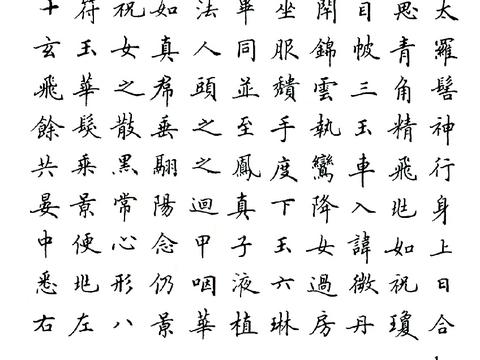 太羅髻神行身上日合
思青角精飛兆如祝瓊
目帔三玉車入諱微丹
閉錦雲執鸞降女過房
坐服穨手度下玉六琳
畢同並至鳳真子液植
法人頭之之迴甲咽華
如真帬垂翮陽念仍景
祝女之散黑常心形八
符玉華髮乘景便兆左
十玄飛餘共晏中悉右